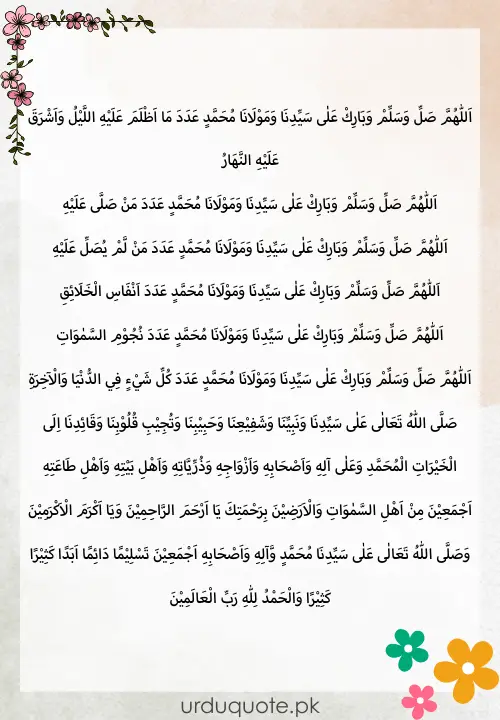 اَللّٰهُمَّ صَلِّ وَسَلِّمْ وَبَارِكْ عَلٰى سَيِّدِنَا وَمَوْلَانَا مُحَمَّدٍ عَدَدَ مَا اَظْلَمَ عَلَيْهِ اللَّيْلُ وَاَشْرَقَ
عَلَيْهِ النَّهَارُ
اَللّٰهُمَّ صَلِّ وَسَلِّمْ وَبَارِكْ عَلٰى سَيِّدِنَا وَمَوْلَانَا مُحَمَّدٍ عَدَدَ مَنْ صَلَّى عَلَيْهِ
اَللّٰهُمَّ صَلِّ وَسَلِّمْ وَبَارِكْ عَلٰى سَيِّدِنَا وَمَوْلَانَا مُحَمَّدٍ عَدَدَ مَنْ لَّمْ يُصَلِّ عَلَيْهِ
اَللّٰهُمَّ صَلِّ وَسَلِّمْ وَبَارِكْ عَلٰى سَيِّدِنَا وَمَوْلَانَا مُحَمَّدٍ عَدَدَ اَنْفَاسِ الْخَلَائِقِ
اَللّٰهُمَّ صَلِّ وَسَلِّمْ وَبَارِكْ عَلٰى سَيِّدِنَا وَمَوْلَانَا مُحَمَّدٍ عَدَدَ نُجُوْمِ السَّمٰوَاتِ
اَللّٰهُمَّ صَلِّ وَسَلِّمْ وَبَارِكْ عَلٰى سَيِّدِنَا وَمَوْلَانَا مُحَمَّدٍ عَدَدَ كُلِّ شَيْءٍ فِي الدُّنْيَا وَالْاٰخِرَةِ
صَلَّى اللّٰهُ تَعَالٰى عَلٰى سَيِّدِنَا وَنَبِيِّنَا وَشَفِيْعِنَا وَحَبِيْبِنَا وَتُجِيْبِ قُلُوْبِنَا وَقَائِدِنَا اِلَى
الْخَيْرَاتِ الْمُحَمَّدِ وَعَلٰى آلِهِ وَاَصْحَابِهِ وَاَزْوَاجِهِ وَذُرِّيَّاتِهِ وَاَهْلِ بَيْتِهِ وَاَهْلِ طَاعَتِهِ
اَجْمَعِيْنَ مِنْ اَهْلِ السَّمٰوَاتِ وَالْاَرَضِيْنَ بِرَحْمَتِكَ يَا اَرْحَمَ الرَّاحِمِيْنَ وَيَا اَكْرَمَ الْاَكْرَمِيْنَ
وَصَلَّى اللّٰهُ تَعَالٰى عَلٰى سَيِّدِنَا مُحَمَّدٍ وَّآلِهِ وَاَصْحَابِهِ اَجْمَعِيْنَ تَسْلِيْمًا دَائِمًا اَبَدًا كَثِيْرًا
كَثِيْرًا وَالْحَمْدُ لِلّٰهِ رَبِّ الْعَالَمِيْنَ
urduquote.pk